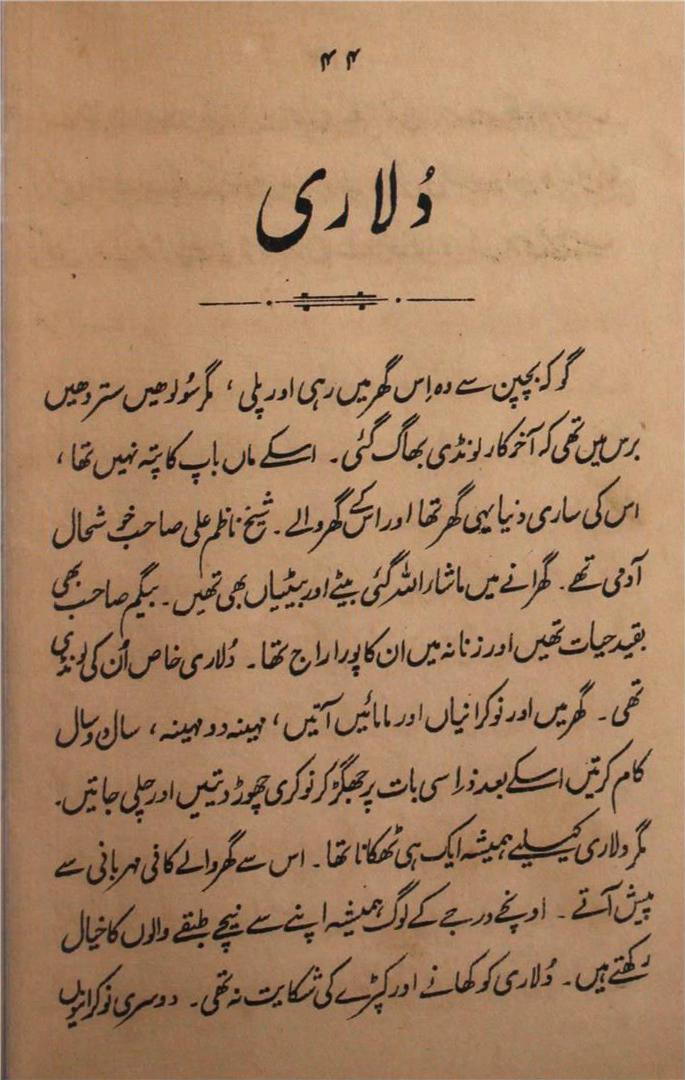 ۴۴
دُلاری
گو کہ بچپن سے وہ اِس گھر میں رہی اور پلی ، مگر سُولھویں سترھویں
برس میں تھی کہ آخر کار لونڈی بھاگ گئی ۔ اسکے ماں باپ کا پتہ نہیں تھا ،
اس کی ساری دنیا یہی گھر تھا اور اس کے گھر والے ۔ شیخ ناظم علی صاحب خوشحال
آدمی تھے ۔ گھرانے میں ماشاراللہ گئی بیٹے اور بیٹیاں بھی تھیں ۔ بیگم صاحب بھی
بقید حیات تھیں اور زنانہ میں ان کا پورا راج تھا ۔ دُلاری خاص اُن کی لونڈی
تھی ۔ گھر میں اور نوکرانیاں اور مامائیں آتیں ، مہینہ دو مہینہ ، سال دو سال
کام کرتیں اسکے بعد ذرا سی بات پر جھگڑ کر نوکری چھوڑ دیتیں اور چلی جاتیں ۔
مگر دلاری کیلیے ہمیشہ ایک ہی ٹھکانا تھا ۔ اس سے گھر والے کافی مہربانی سے
پیش آتے ۔ اونچے درجے کے لوگ ہمیشہ اپنے سے نیچے طبقے والوں کا خیال
رکھتے ہیں ۔ دُلاری کو کھانے اور کپڑے کی شکایت نہ تھی ۔ دوسری نوکرانیوں